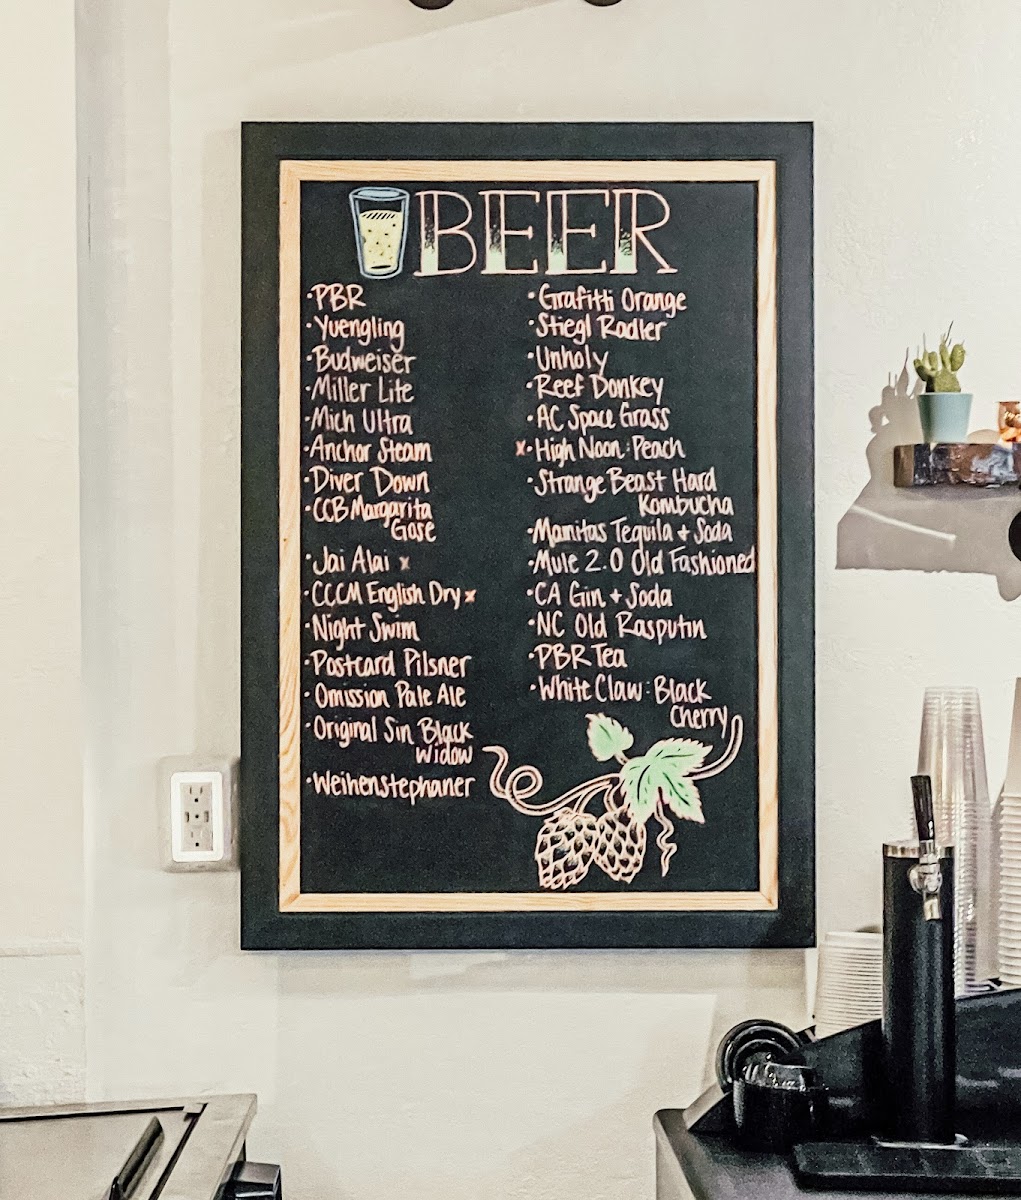 BEER
·PBR
·Yuengling
·Budweiser
·Miller Lite
·Mich Ultra
·Anchor Steam
·Diver Down
·CCB Margarita
Gose
·Jai Alai x
·CCCM English Dry x
·Night Swim
·Postcard Pilsner
·Omission Pale Ale
·Original Sin Black
Widow
·Weihenstephaner
·Grafitti Orange
·Stiegl Radler
·Unholy
·Reef Donkey
·AC Space Grass
x·High Noon: Peach
·Strange Beast Hard
Kombucha
·Mamitas Tequila + Soda
·Mule 2.0 Old Fashioned
·CA Gin + Soda
·NC Old Rasputin
·PBR Tea
·White Claw: Black
Cherry